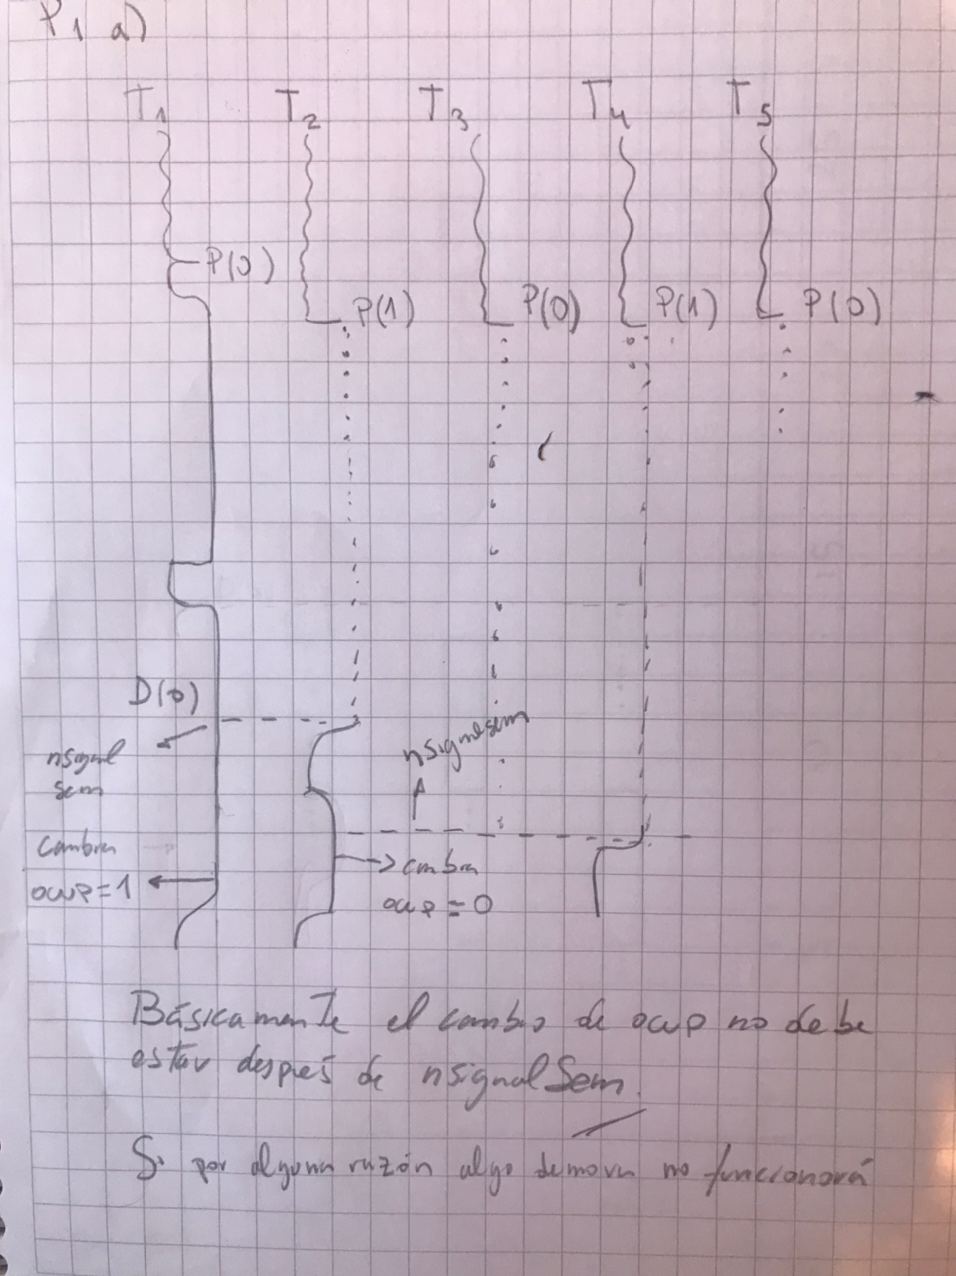 P1 a)
T1 T2 T3 T4 T5
P(0)
P(1) P(0) P(1) P(0)
D(0)
nsignal
sem
nsignalsem
cambia
ocup=1
cmbia
ocup=0
Básicamente el cambio de ocup no debe
estar despues de nsignalSem.
Si por alguna razón algo demora no funcionará